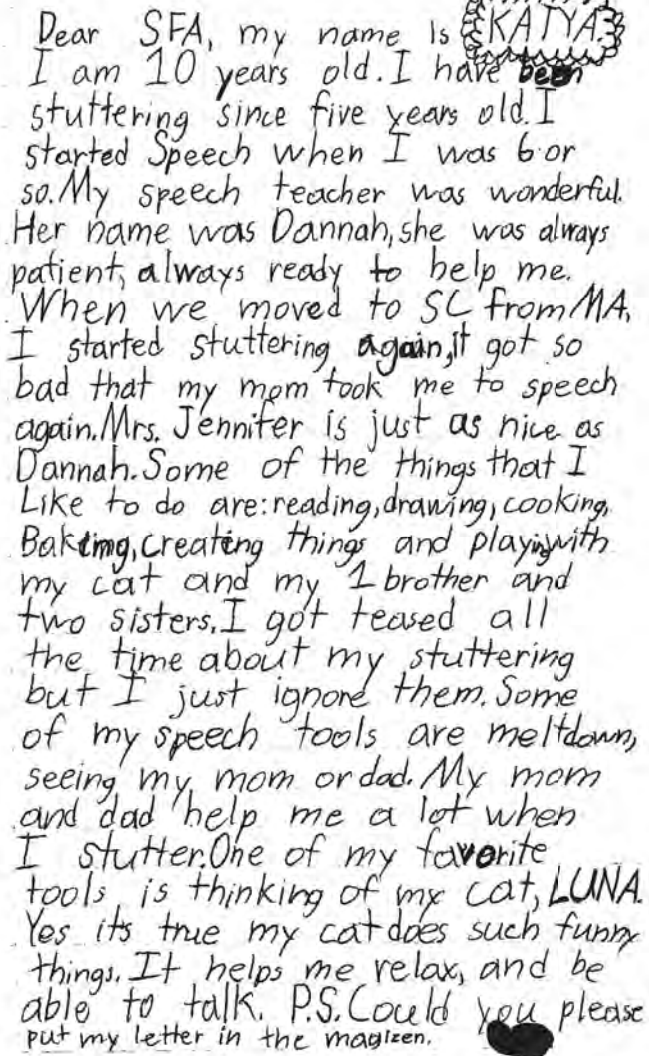 Dear SFA, my name is KATYA.
I am 10 years old. I have been
stuttering since five years old. I
started Speech when I was 6 or
so. My speech teacher was wonderful.
Her name was Dannah, she was always
patient, always ready to help me.
When we moved to SC from MA,
I started stuttering again, it got so
bad that my mom took me to speech
again. Mrs. Jennifer is just as nice as
Dannah. Some of the things that I
Like to do are: reading, drawing, cooking,
Baking, creating things and playing with
my cat and my 1 brother and
two sisters. I got teased all
the time about my stuttering
but I just ignore them. Some
of my speech tools are meltdown,
seeing my mom or dad. My mom
and dad help me a lot when
I stutter. One of my favorite
tools is thinking of my cat, LUNA.
Yes its true my cat does such funny
things. It helps me relax, and be
able to talk. P.S. Could you please
put my letter in the magizen.